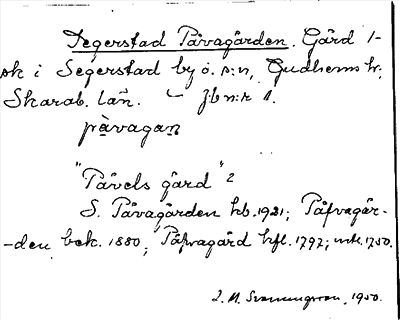 Segerstad Påvagården. Gård 1-
sk i Segerstad by o. s:n, Gudhems hd,
Skarab. län. – Jb nr: 1.
pàvagan

"Påvels gård" 2
S. Påvagården hb. 1921; Påfvagår-
-den bek. 1880; Påfvagård hfl. 1797; mtl. 1750.

J. M. Svenningsson, 1950.